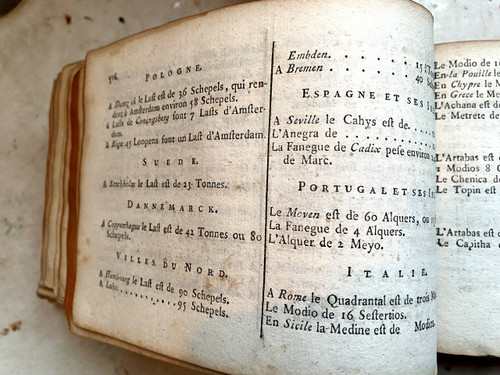 POLOGNE.
A Dantzick le Last est de 56 Schepels, qui ren-
dent à Amsterdam environ 58 Schepels.
6 Lasts de Coningsberg font 7 Lasts d'Amster-
dam.
A Riga 45 Loopens font un Last d'Amsterdam.
SUEDE.
A Stockholm le Last est de 23 Tonnes.
DANNEMARCK.
A Coppenhague le Last est de 42 Tonnes ou 80
Schepels.
VILLES DU NORD.
A Hambourg le Last est de 90 Schepels.
A Lubec 95 Schepels.
Embden.
A Bremen. 40
ESPAGNE ET SES
A Seville le Cahys est de.
L'Anegra de
La Fanegue de Cadix pese environ
de Marc.
PORTUGAL ET SES
Le Moyen est de 60 Alquers, ou
La Fanegue de 4 Alquers.
L'Alquer de 2 Meyo.
ITALIE.
A Rome le Quadrantal est de trois
Le Modio de 16 Sestertios.
En Sicile la Medine est de Modios
Le Modio de
En la Pouille le
En Chypre le M
En Grece le Me
L'Achana est d
Le Metrete de
L'Artabas est
1 Modios 8 C
Le Chenica d
Le Topin est
L'Artabas est
Le Capitha